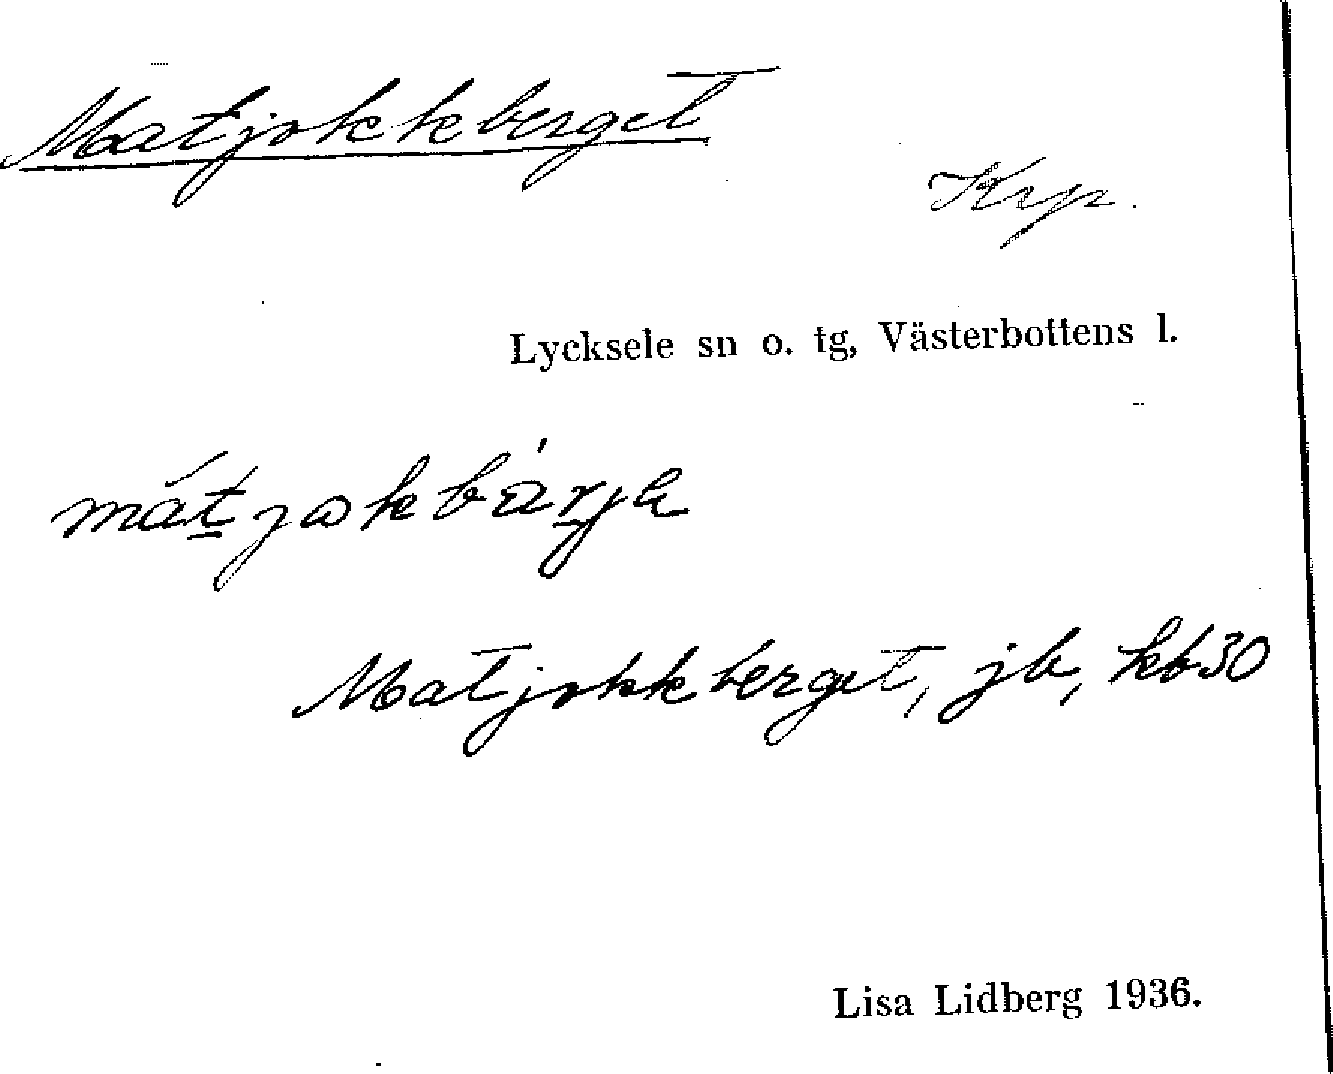 Matjokkberget
Krp.
Lycksele sn o. tg, Västerbottens l.
mátjokbárja
Matjokkberget, jb, kb30
Lisa Lidberg 1936.